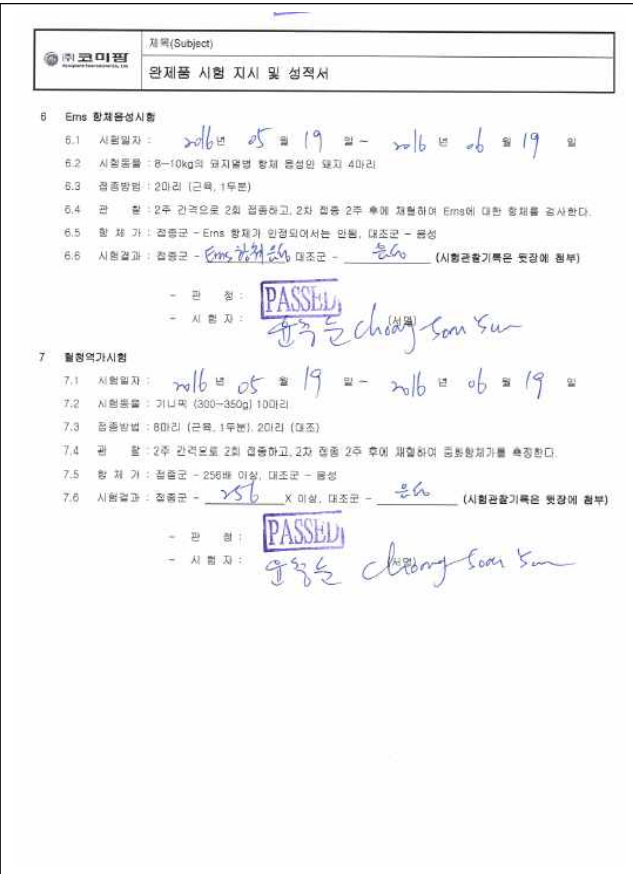 (주)코미팜
제목(Subject)
완제품 시험 지시 및 성적서
6 Erns 항체음성시험
6.1 시험일자 : 2016년 05 월 19 일 - 2016 년 06 월 19 일
6.2 시험동물 : 8-10kg의 돼지열병 항체 음성인 돼지 4마리
6.3 접종방법 : 2마리 (근육, 1두분)
6.4 관 찰 : 2주 간격으로 2회 접종하고, 2차 접종 2주 후에 채혈하여 Erns에 대한 항체를 검사한다.
6.5 항 체 가 : 접종군 - Erns 항체가 인정되어서는 안됨, 대조군 - 음성
6.6 시험결과 : 접종군 - Erns 항체 음성 대조군 - 음성 (시험관찰기록은 뒷장에 첨부)
- 판 정 : PASSED
- 시 험 자 : (서명)
7 혈청역가시험
7.1 시험일자 : 2016 년 05 월 19 일 - 2016 년 06 월 19 일
7.2 시험동물 : 기니픽 (300-350g) 10마리
7.3 접종방법 : 8마리 (근육, 1두분). 2마리 (대조)
7.4 관 찰 : 2주 간격으로 2회 접종하고, 2차 접종 2주 후에 채혈하여 중화항체가를 측정한다.
7.5 항 체 가 : 접종군 - 256배 이상, 대조군 - 음성
7.6 시험결과 : 접종군 - 256 X 이상, 대조군 - 음성 (시험관찰기록은 뒷장에 첨부)
- 판 정 : PASSED
- 시 험 자 : (서명)